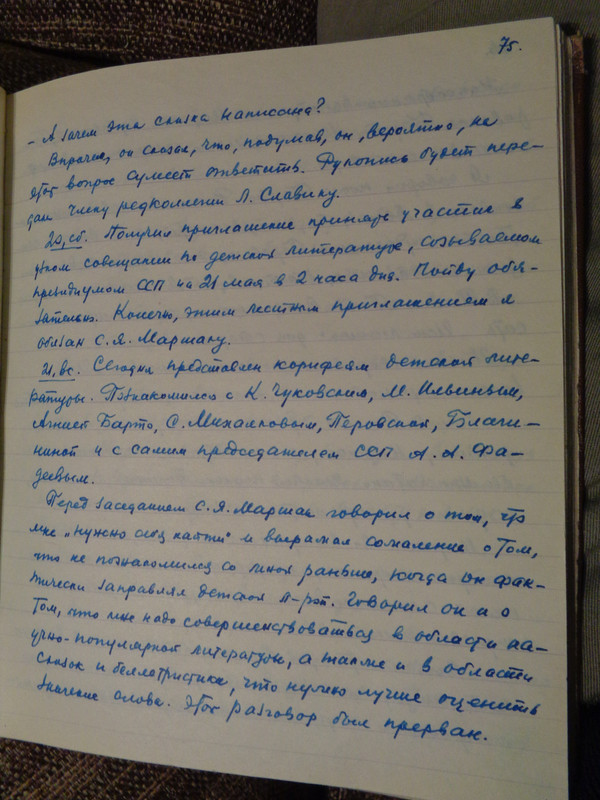 75.
– А зачем эта сказка написана?
Впрочем, он сказал, что, подумав, он, вероятно, на
этот вопрос сумеет ответить. Рукопись будет пере-
дан члену редколлегии Л. Славину.
20, сб. Получил приглашение принять участие в
узком совещании по детской литературе, созываемом
президиумом ССП на 21 мая в 2 часа дня. Пойду обя-
зательно. Конечно, этим лестным приглашением я
обязан С.Я. Маршаку.
21, вс. Сегодня представлен корифеям детской лите-
ратуры. Познакомился с К. Чуковским, М. Ильиным,
Агнией Барто, С. Михалковым, Перовской, Благи-
ниной и с самим председателем ССП А. А. Фа-
деевым.
Перед заседанием С.Я. Маршак говорил о том, что
мне „нужно себя найти" и выражал сожаление о том,
что не познакомился со мной раньше, когда он фак-
тически заправлял детской л-рой. Говорил он и о
том, что мне надо совершенствоваться в области на-
учно-популярной литературы, а также и в области
сказок и беллетристики, что нужно лучше оценить
значение слова. Этот разговор был прерван.